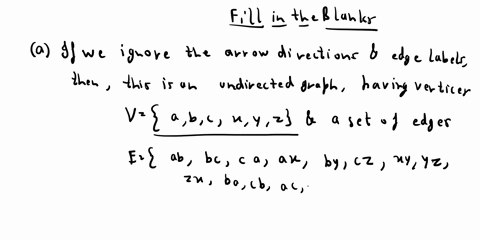 Fill in the Blanks
(a) If we ignore the arrow directions & edge labels,
then, this is an undirected graph, having vertices
V={ a,b,c, x,y,z} & a set of edges
E={ ab, bc, ca, ax, by, cz, xy, yz,
zx, ba, cb, ac,